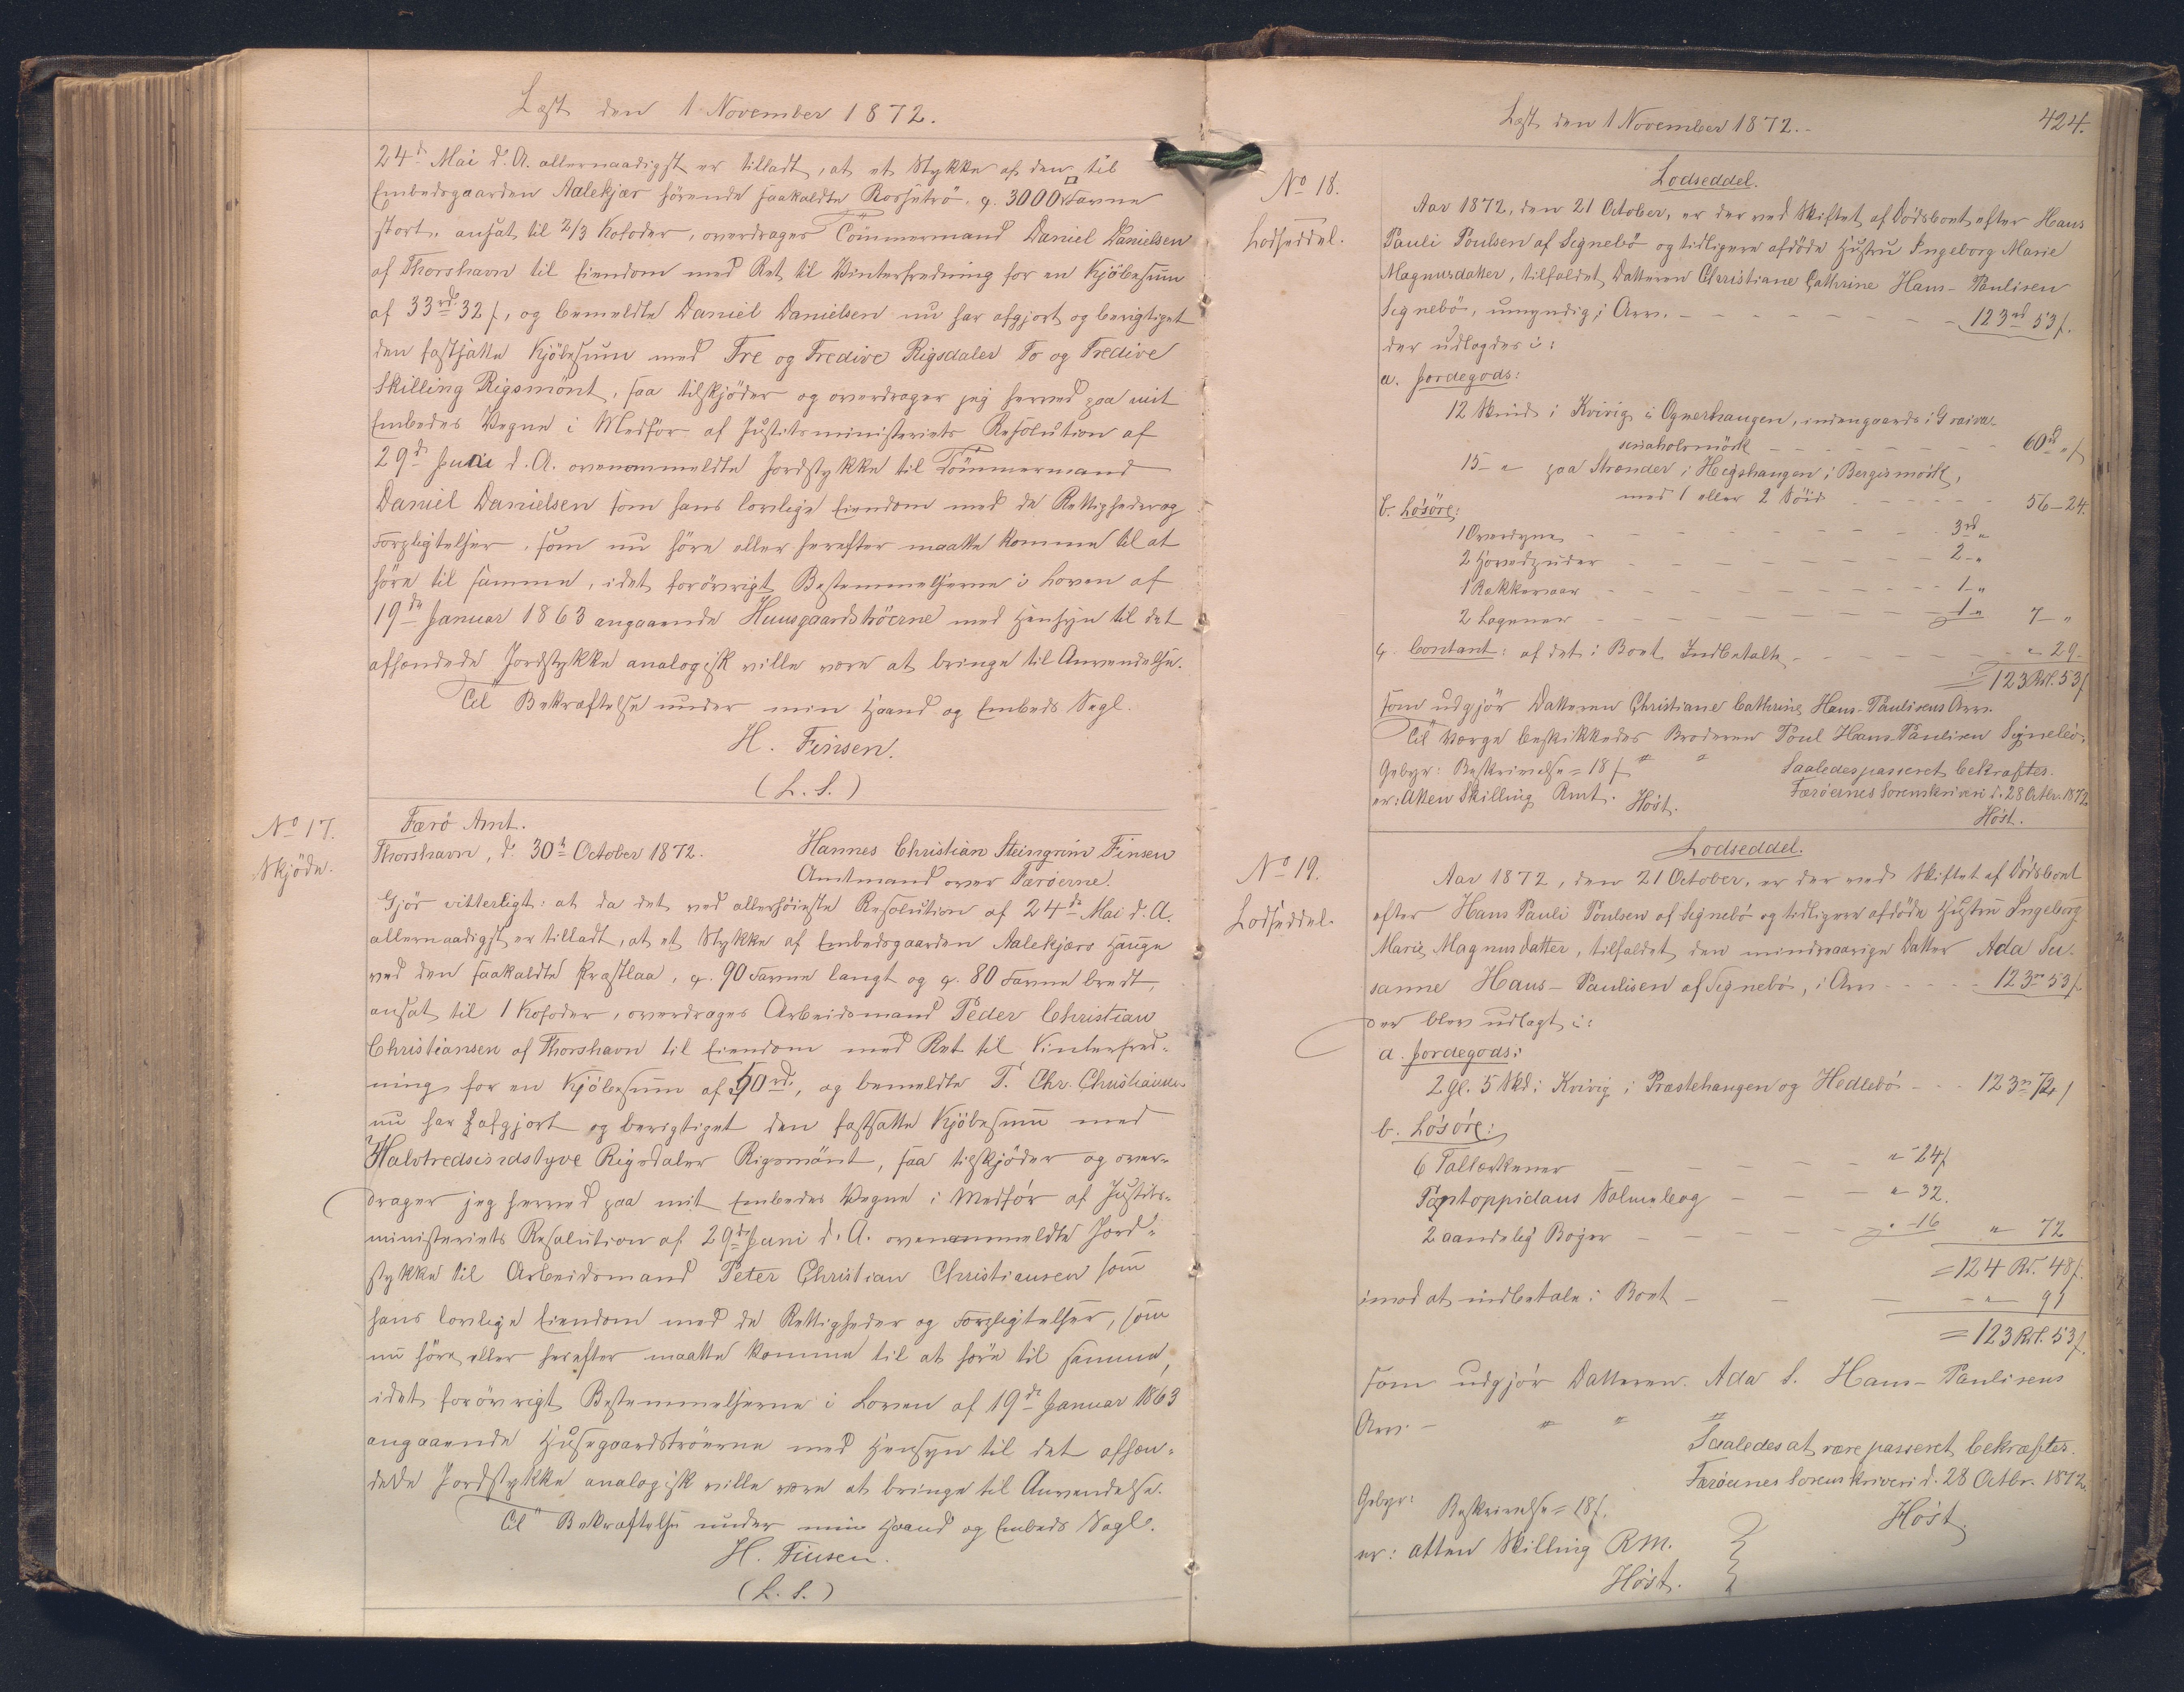 Læst den 1 November 1872.
24d Mai d. A. allernaadigst er tilladt, at et Stykke af den til
Embedsgaarden Aalekjær hörende saakaldte Rossetrö, c. 3000 □ Favne
stort, ansat til 2/3 Kofoder, overdrages Tömmermand Daniel Danielsen
af Thorshavn til Eiendom med Ret til Vinterfredning for en Kjöbesum
af 33rd 32 s, og bemeldte Daniel Danielsen nu har afgjort og berigtiget
den fastsatte Kjöbesum med Tre og Tredive Rigsdaler To og Tredive
Skilling Rigsmönt, saa tilskjöder og overdrager jeg herved paa mit
Embedes Vegne i Medför af Justitsministeriets Resolution af
29d Juni d. A. ovenommeldte Jordstykke til Tömmermand
Daniel Danielsen som hans lovlige Eiendom med de Rettigheder og
Forpligtelser, som nu höre eller herefter maatte komme til at
höre til samme, idet forövrigt Bestemmelserne i Loven af
19de Januar 1863 angaaende Huusgaardströerne med Hensyn til det
afhændede Jordstykke analogisk ville være at bringe til Anvendelse.
Til Bekræftelse under min Haand og Embeds Segl.
H. Finsen.
(L. S.)
No 17.
Skjöde.
Færö Amt.
Thorshavn, d. 30te October 1872.
Hannes Christian Steingrim Finsen
Amtmand over Færöerne.
Gjör vitterligt: at da det ved allerhöieste Resolution af 24de Mai d. A.
allernaadigst er tilladt, at et Stykke af Embedsgaarden Aalekjærs Hauge
ved den saakaldte Præstlaa, c. 90 Favne langt og c. 80 Favne bredt,
ansat til 1 Kofoder, overdrages Arbeidsmand Peder Christian
Christiansen af Thorshavn til Eiendom med Ret til Vinterfred-
ning for en Kjöbesum af 50rd, og bemeldte P. Chr. Christiansen
nu har afgjort og berigtiget den fastsatte Kjöbesum med
Halvtredsindstyve Rigsdaler Rigsmönt, saa tilskjöder og over-
drager jeg herved paa mit Embedes Vegne i Medför af Justits-
ministeriets Resolution af 29de Juni d. A. ovenommeldte Jord-
stykke til Arbeidsmand Peter Christian Christiansen som
hans lovlige Eiendom med de Rettigheder og Forpligtelser, som
nu höre eller herefter maatte komme til at höre til samme,
idet forövrigt Bestemmelserne i Loven af 19de Januar 1863
angaaende Husegaardströerne med Hensyn til det afhæn-
dede Jordstykke analogisk ville være at bringe til Anvendelse.
Til Bekræftelse under min Haand og Embeds Segl.
H. Finsen.
(L. S.)
Læst den 1 November 1872.
424.
No 18.
Lodseddel.
Lodseddel.
Aar 1872, den 21 October, er der ved Skiftet af Dödsboet efter Hans
Pauli Poulsen af Signebö og tidligere afdöde Hustru Ingeborg Marie
Magnusdatter, tilfaldet Datteren Christiane Cathrine Hans-Paulisen
Signebö, umyndig, i Arv. 123rd 53 s.
der udlagdes i:
a. Jordegods:
12 Skind i Kvivig i Ognerhaugen, indengaards i
60rd " s
15 " paa Strender i Hegshaugen i Bergismörk,
med 1 eller 2 Söid 56-24.
b. Lösöre:
1 Overdyne 3rd "
2 Hovedpuder 2 - "
1 Rekkevaar 1 - "
2 Lagener 1 - " 7 - "
c. Contant: af det i Boet Indbetalte " 29.
= 123 Rd. 53 s
som udgjör Datteren Christiane Cathrine Hans-Paulisens Arv.
Til Værge beskikkedes Broderen Poul Hans-Paulisen Signebö.
Gebyr: Beskrivelse = 18 s
er: Atten Skilling Rmt.
Höst.
Saaledes passeret bekræftes.
Færöernes Sorenskriveri d. 28 Octbr. 1872
Höst.
No 19.
Lodseddel.
Lodseddel.
Aar 1872, den 21 October, er der ved Skiftet af Dödsboet
efter Hans Pauli Poulsen af Signebö og tidligere afdöde Hustru Ingeborg
Marie Magnusdatter, tilfaldet den mindreaarige Datter Ada Su-
sanne Hans-Paulisen af Signebö, i Arv 123rd 53 s.
der blev udlagt i:
a. Jordegods:
2 Gl. 5 Skd. i Kvivig i Præstehaugen og Hedlebö 123rd 72 s
b. Lösöre:
6 Tallerkener " 24 s
Pontoppidans Salmebog " 32.
2 aandelig Böger " 16 " 72
= 124 Rd. 48 s.
imod at indbetale i Boet " 91
= 123 Rd. 53 s.
som udgjör Datteren Ada S. Hans-Paulisens
Arv.
Saaledes at være passeret bekræftes.
Færöernes Sorenskriveri d. 28 Octbr. 1872.
Höst.
Gebyr: Beskrivelse = 18 s.
er: atten Skilling RM.
Höst.